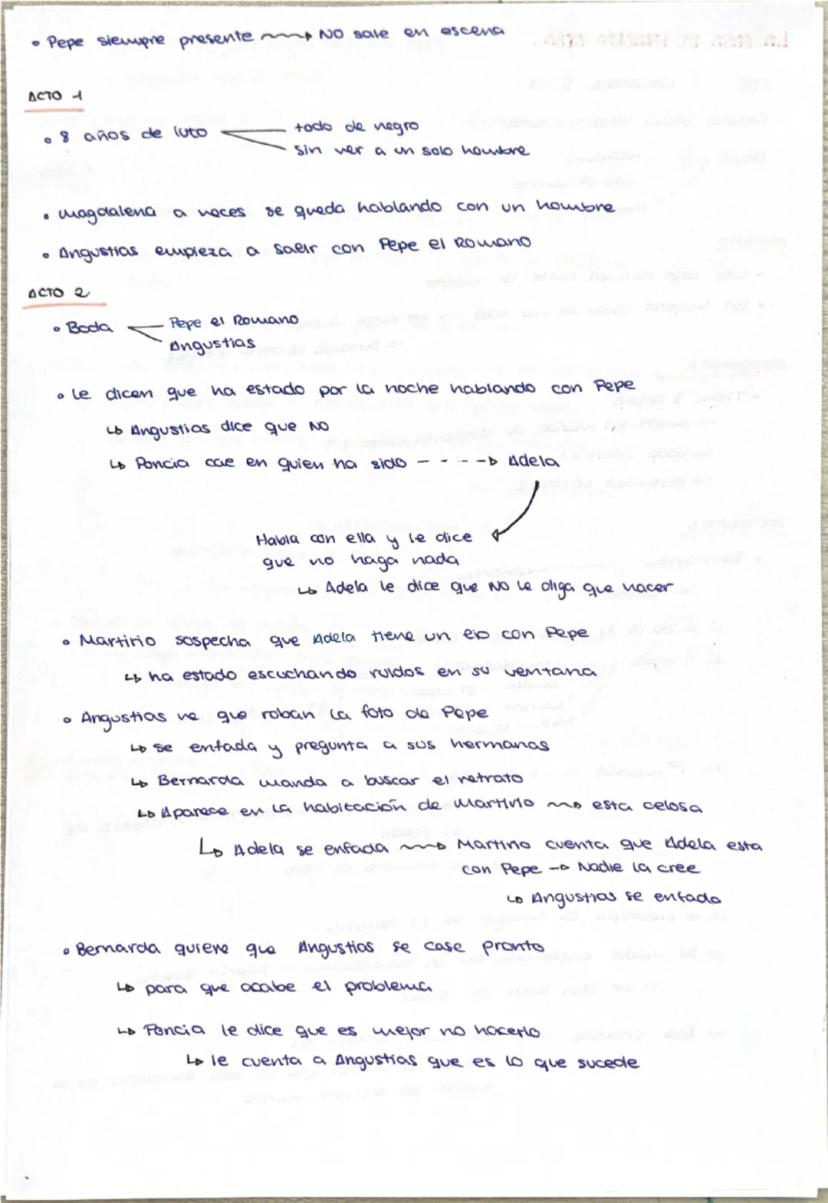 • Pepe siempre presente ⟿ NO sale en escena
ACTO 1
• 8 años de luto
todo de negro
sin ver a un solo hombre
• Magdalena a veces se queda hablando con un hombre
• Angustias empieza a salir con Pepe el Romano
ACTO 2
• Boda
Pepe el Romano
Angustias
• le dicen que ha estado por la noche hablando con Pepe
↳ Angustias dice que NO
↳ Poncia cae en quien ha sido ----→ Adela
Habla con ella y le dice
que no haga nada
↳ Adela le dice que NO le diga que hacer
• Martirio sospecha que Adela tiene un lío con Pepe
↳ ha estado escuchando ruidos en su ventana
• Angustias ve que roban la foto de Pepe
↳ se enfada y pregunta a sus hermanas
↳ Bernarda manda a buscar el retrato
↳ Aparese en la habitación de Martirio ⟿ esta celosa
↳ Adela se enfada ⟿ Martirio cuenta que Adela esta
con Pepe → Nadie la cree
↳ Angustias se enfada
• Bernarda quiere que Angustias se case pronto
↳ para que acabe el problema
↳ Poncia le dice que es mejor no hacerlo
↳ le cuenta a Angustias que es lo que sucede